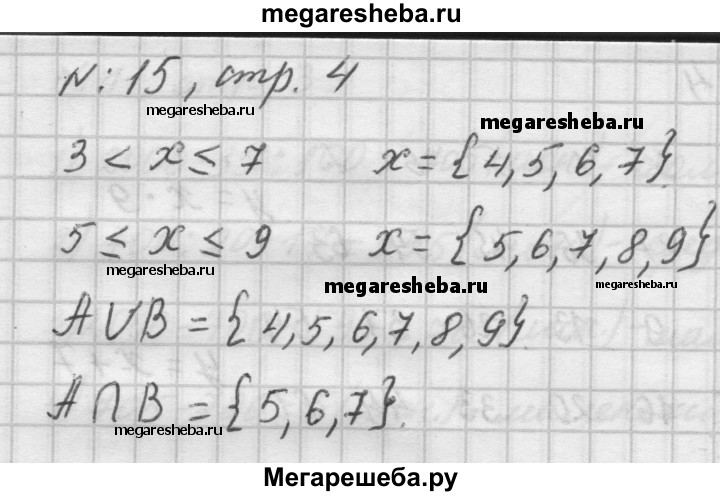 megaresheba.ru
№: 15, стр. 4
megaresheba.ru
megaresheba.ru
3 < x ≤ 7 x = {4, 5, 6, 7}.
5 ≤ x ≤ 9 x = {5, 6, 7, 8, 9}
megaresheba.ru
megaresheba.ru
megaresheba.ru
A∪B = {4, 5, 6, 7, 8, 9}.
A∩B = {5, 6, 7}.
megaresheba.ru
megaresheba.ru
Мегарешеба.ру